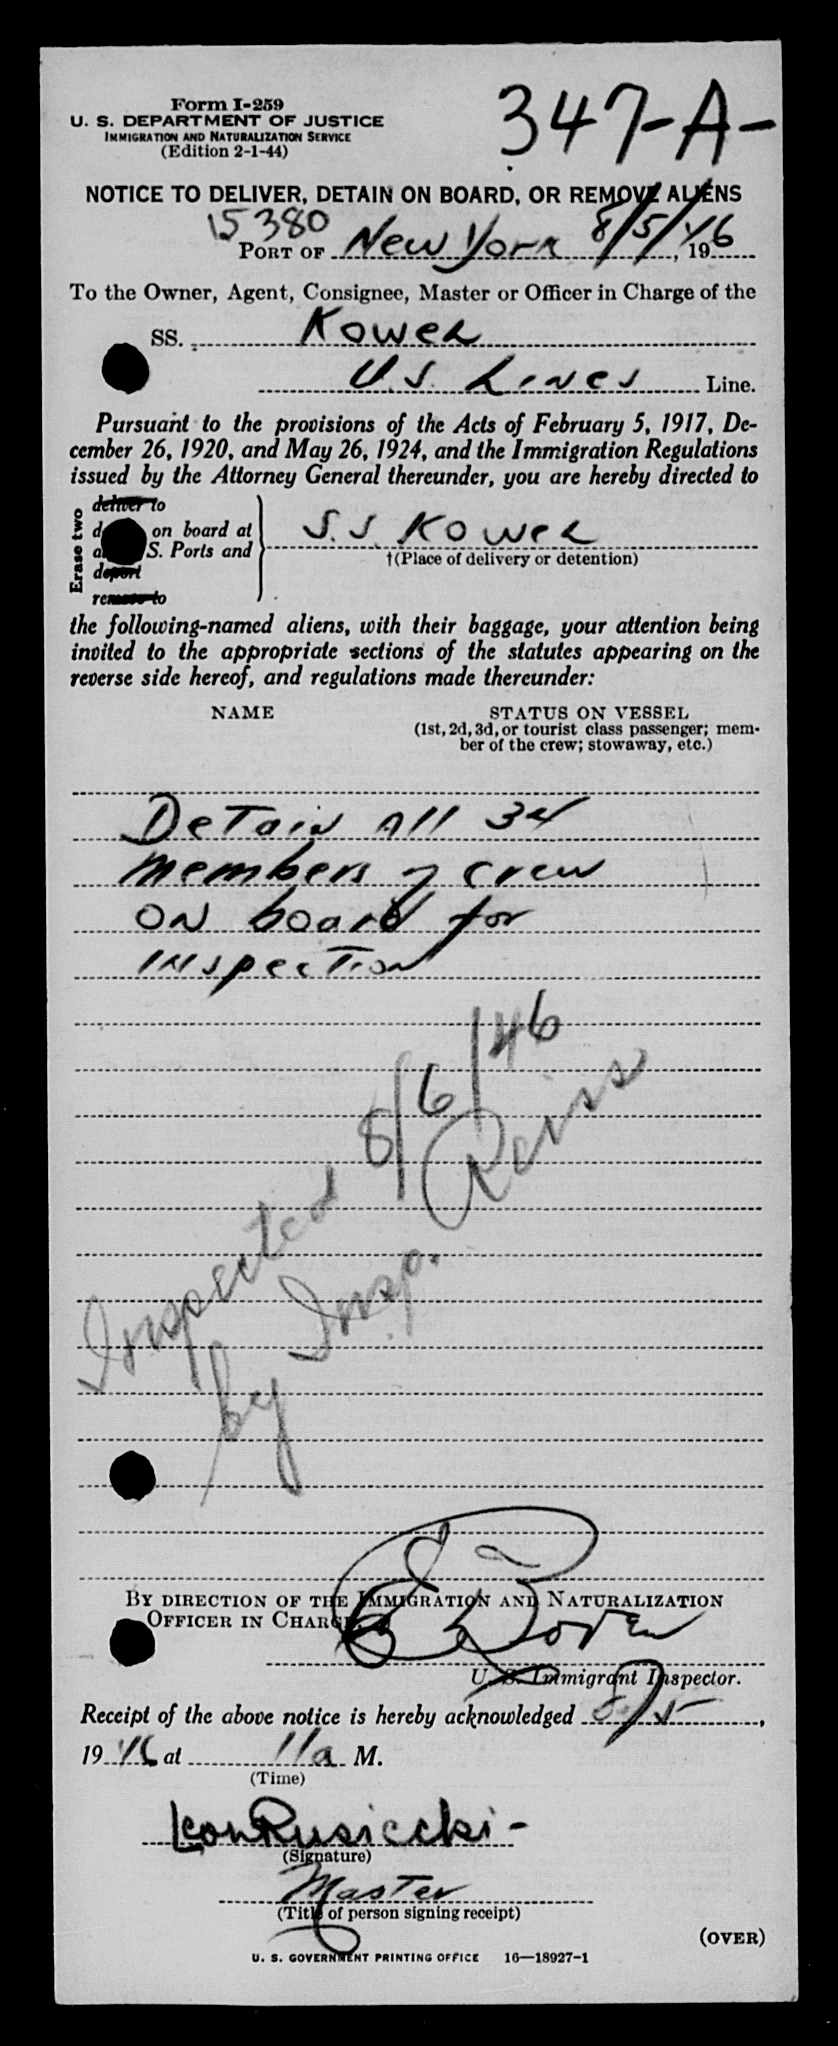 Form I-259
U. S. DEPARTMENT OF JUSTICE
IMMIGRATION AND NATURALIZATION SERVICE
(Edition 2-1-44)
347-A-
NOTICE TO DELIVER, DETAIN ON BOARD, OR REMOVE ALIENS
15380
PORT OF New York 8/5/46, 1946
To the Owner, Agent, Consignee, Master or Officer in Charge of the
SS. Kowel
U.S. Lines Line.
Pursuant to the provisions of the Acts of February 5, 1917, De-
cember 26, 1920, and May 26, 1924, and the Immigration Regulations
issued by the Attorney General thereunder, you are hereby directed to
Erase two
deliver to
on board at
S. Ports and
deport
remove to
S.S. Kowel
†(Place of delivery or detention)
the following-named aliens, with their baggage, your attention being
invited to the appropriate sections of the statutes appearing on the
reverse side hereof, and regulations made thereunder:
NAME
STATUS ON VESSEL
(1st, 2d, 3d, or tourist class passenger; mem-
ber of the crew; stowaway, etc.)
Detain All 34
members of crew
on board for
inspection
Inspected 8/6/46
by Insp. Reiss
BY DIRECTION OF THE IMMIGRATION AND NATURALIZATION
OFFICER IN CHARGE.
U. S. Immigrant Inspector.
Receipt of the above notice is hereby acknowledged 8/5,
1946 at 11a M.
(Time)
Leon Rusiecki-
(Signature)
Master
(Title of person signing receipt)
(OVER)
U. S. GOVERNMENT PRINTING OFFICE 16—18927-1